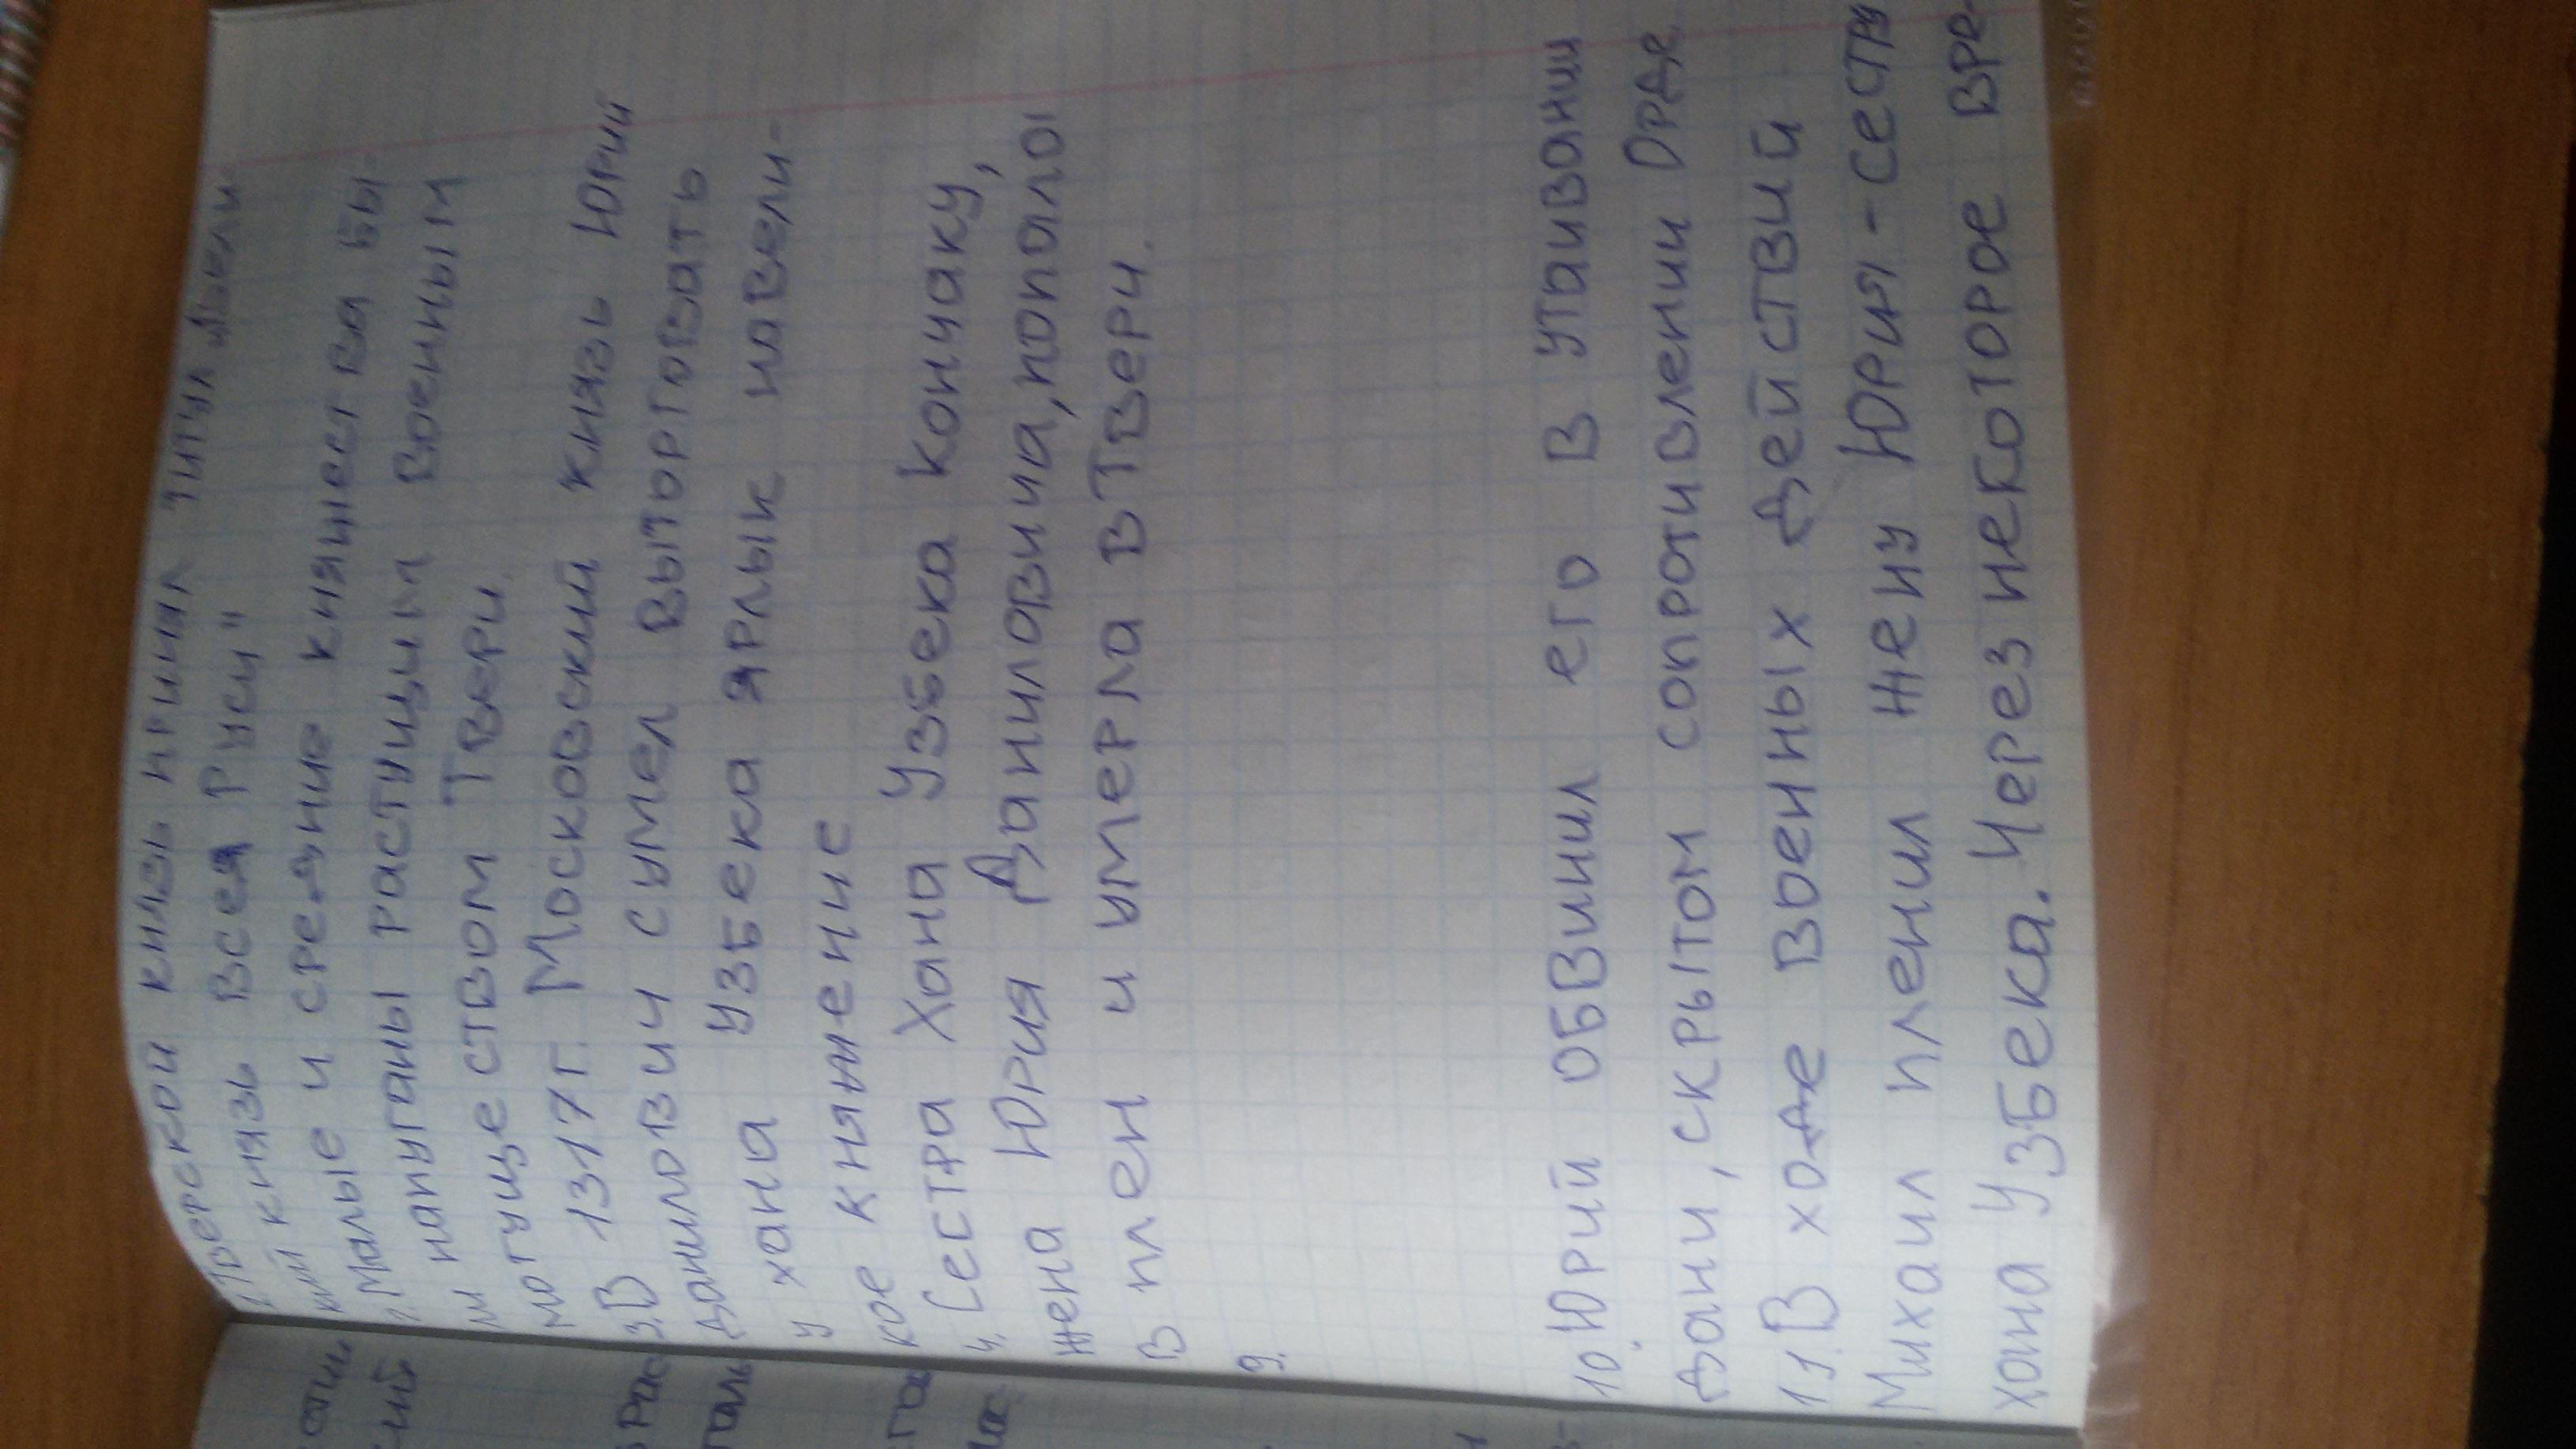 Тверской князь принял титул „Вели-
кий князь всея Руси"
Малые и средние княжества бы-
ли напуганы растущим военным
могуществом Твери.
3. В 1317 г. Московский князь Юрий
Данилович сумел выторговать
у хана Узбека ярлык на вели-
кое княжение
4. Сестра Хана Узбека Кончаку,
жена Юрия Даниловича, попала
в плен и умерла в Твери.
9.
10. Юрий обвинил его в утаивании
дани, скрытом сопротивлении Орде
11. В ходе военных действий
Михаил пленил жену Юрия - сестру
хана Узбека. Через некоторое вре-